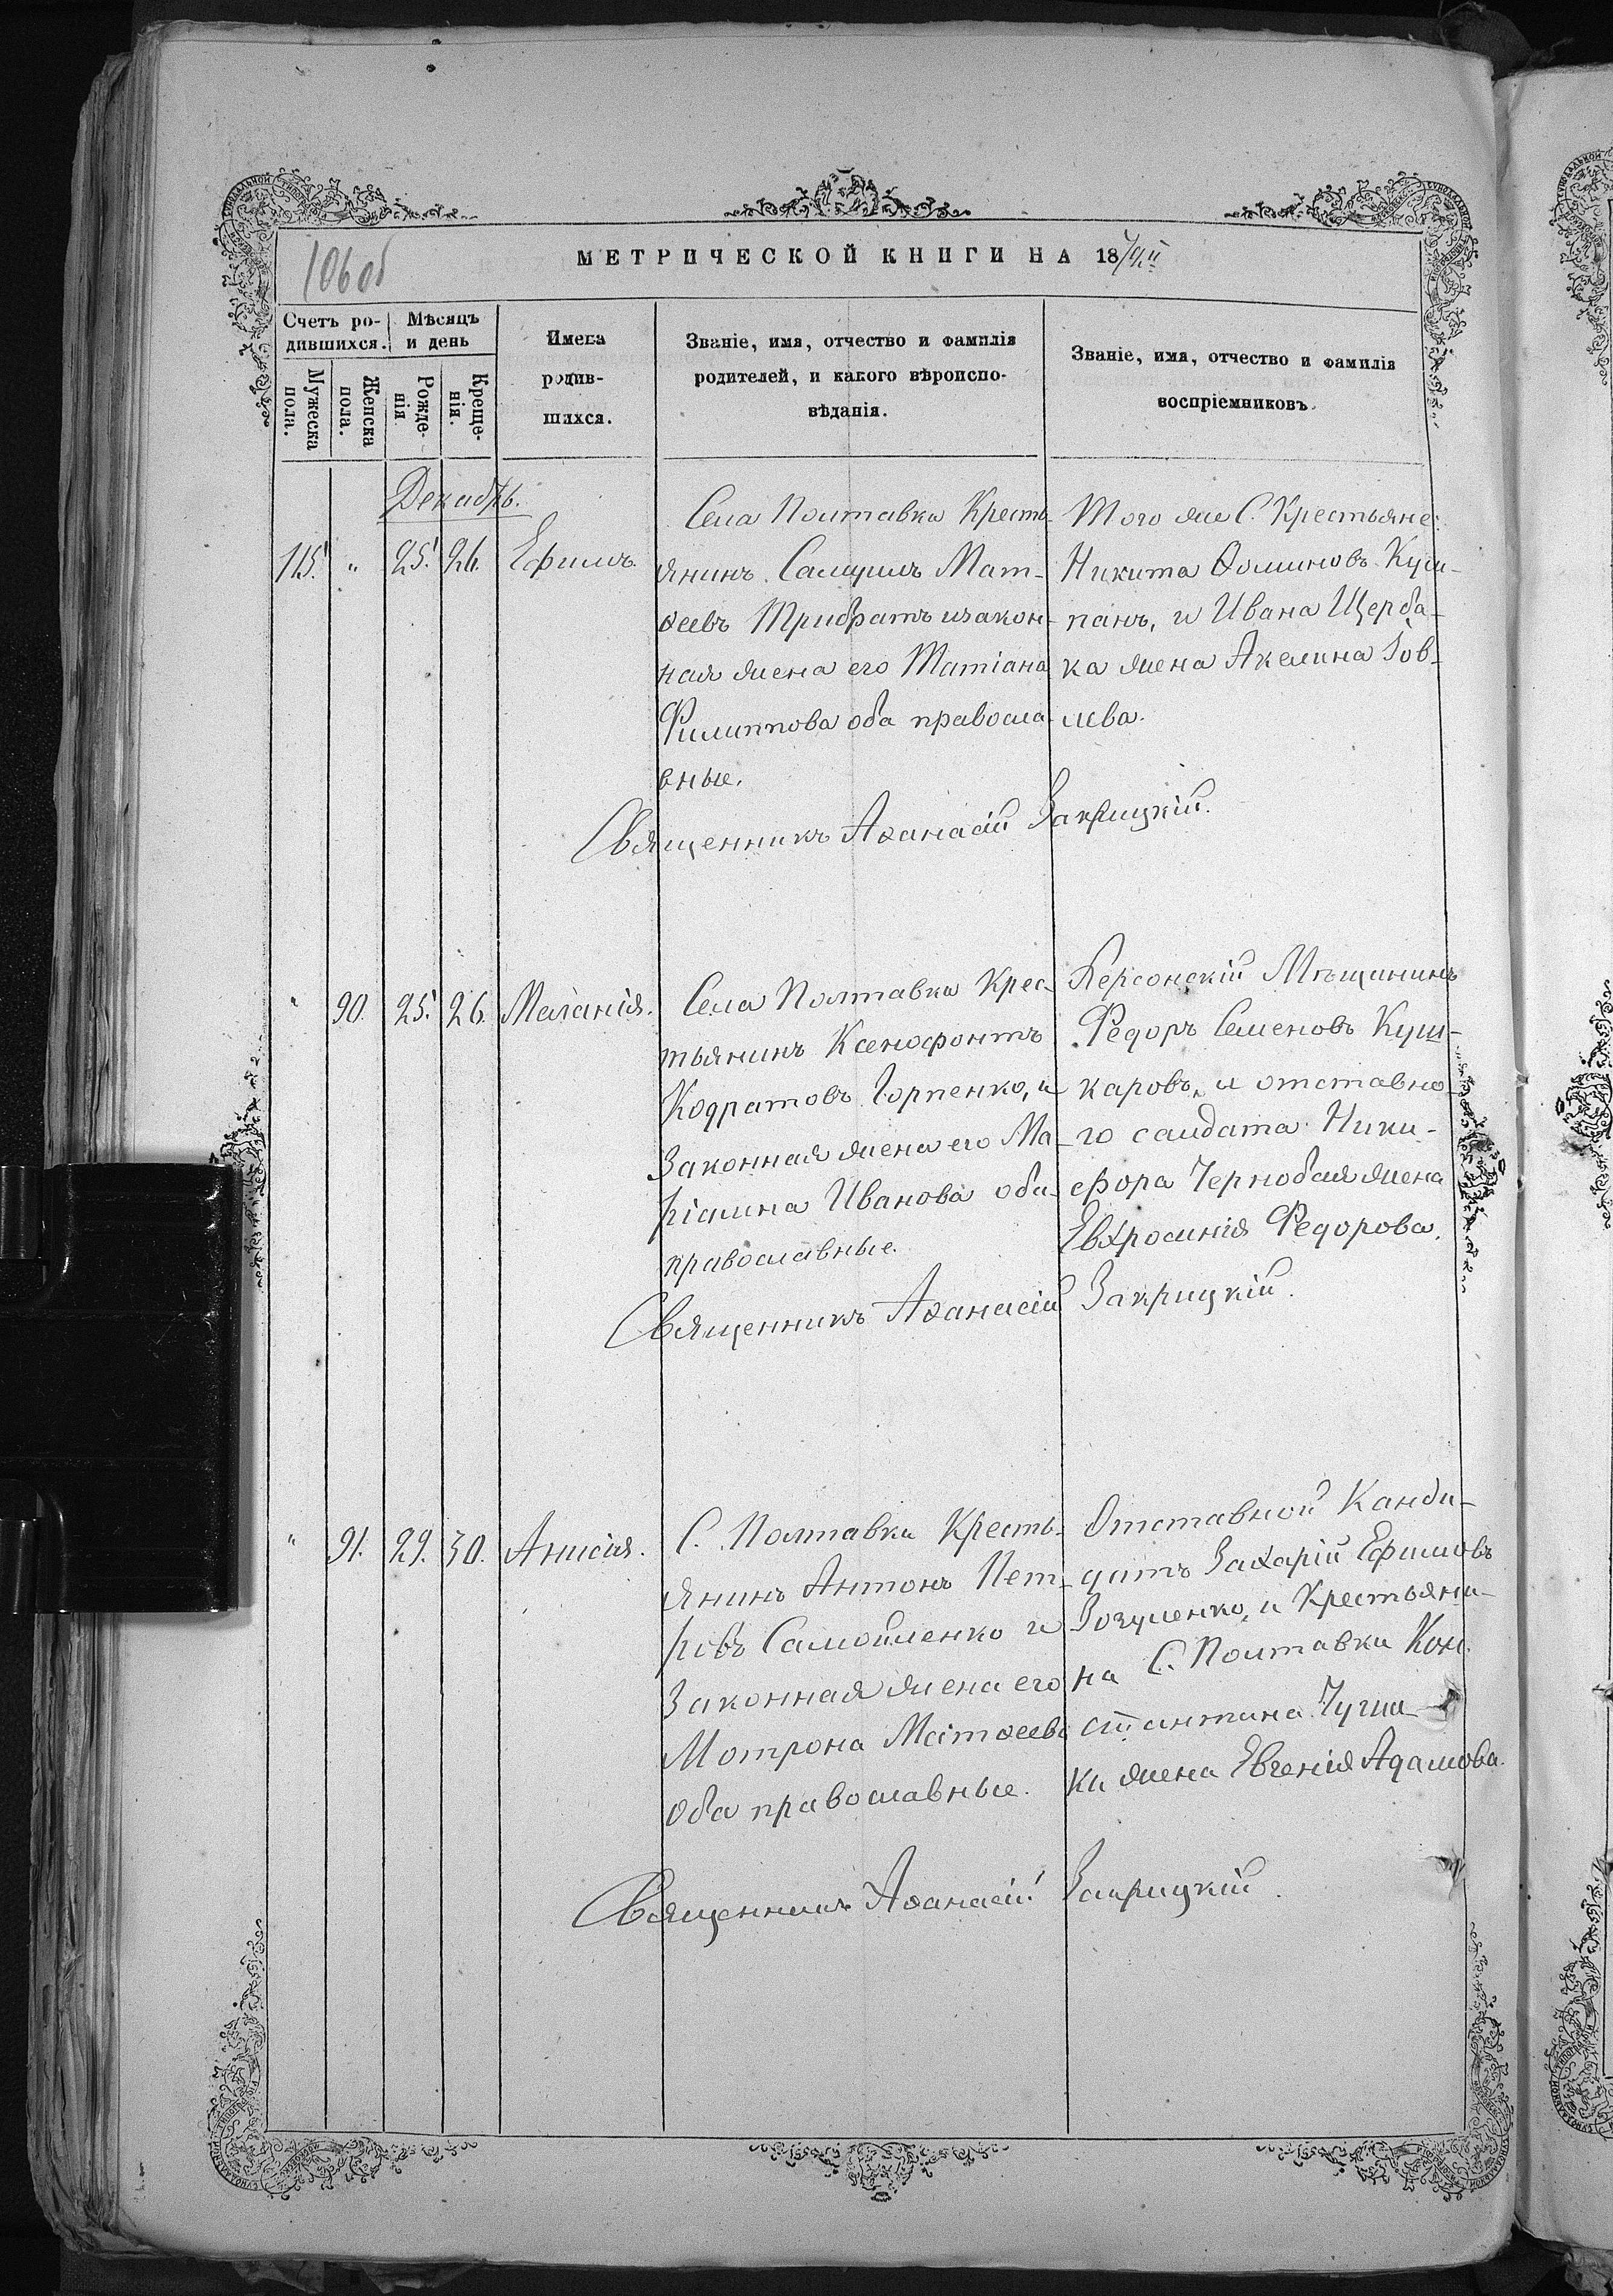 106 об
МЕТРИЧЕСКОЙ КНИГИ НА 18
Счетъ ро-
дившихся.
Мѣсяцъ
и день
Мужеска
пола.
Женска
пола.
Рожде-
нія
Креще-
нія.
Имена
родив-
шихся.
Званіе, имя, отчество и фамилія
родителей, и какого вѣроиспо-
вѣданія.
Званіе, имя, отчество и фамилія
воспріемниковъ.
Декабрь.
115. " 25. 26. Ефимъ.
Села Полтавки Кресть-
янинъ Самуилъ Мат-
ѳеевъ Трибратъ и закон-
ная жена его Татіана
Филиппова оба правосла-
вные.
Того же С. Крестьяне:
Никита Ѳоминовъ
и Ивана Щерба-
ка жена Акелина Іов-
лева.
Священникъ Аѳанасій Закрицкій.
" 90. 25. 26. Маланія.
Села Полтавки Крес-
тьянинъ Ксенофонтъ
Кодратовъ Горпенко, и
Законная жена его Ма-
ріамна Иванова оба
православные.
Херсонскій Мѣщанинъ
Федоръ Семеновъ Куш-
каровъ, и отставно-
го салдата Ники-
фора Чернобая жена
Евхросинія Федорова.
Священникъ Аѳанасій Закрицкій.
" 91. 29. 30. Анисія.
С. Полтавки Кресть-
янинъ Антонъ Пет-
ровъ Самойленко и
Законная жена его
Мотрона Матѳеева
Оба православные.
Отставной Канди-
датъ Захарій Ефимовъ
Зозуленко, и Крестьяни-
на С. Полтавки Кон-
стантина
жена Евгенія Адамова.
Священникъ Аѳанасій Закрицкій.